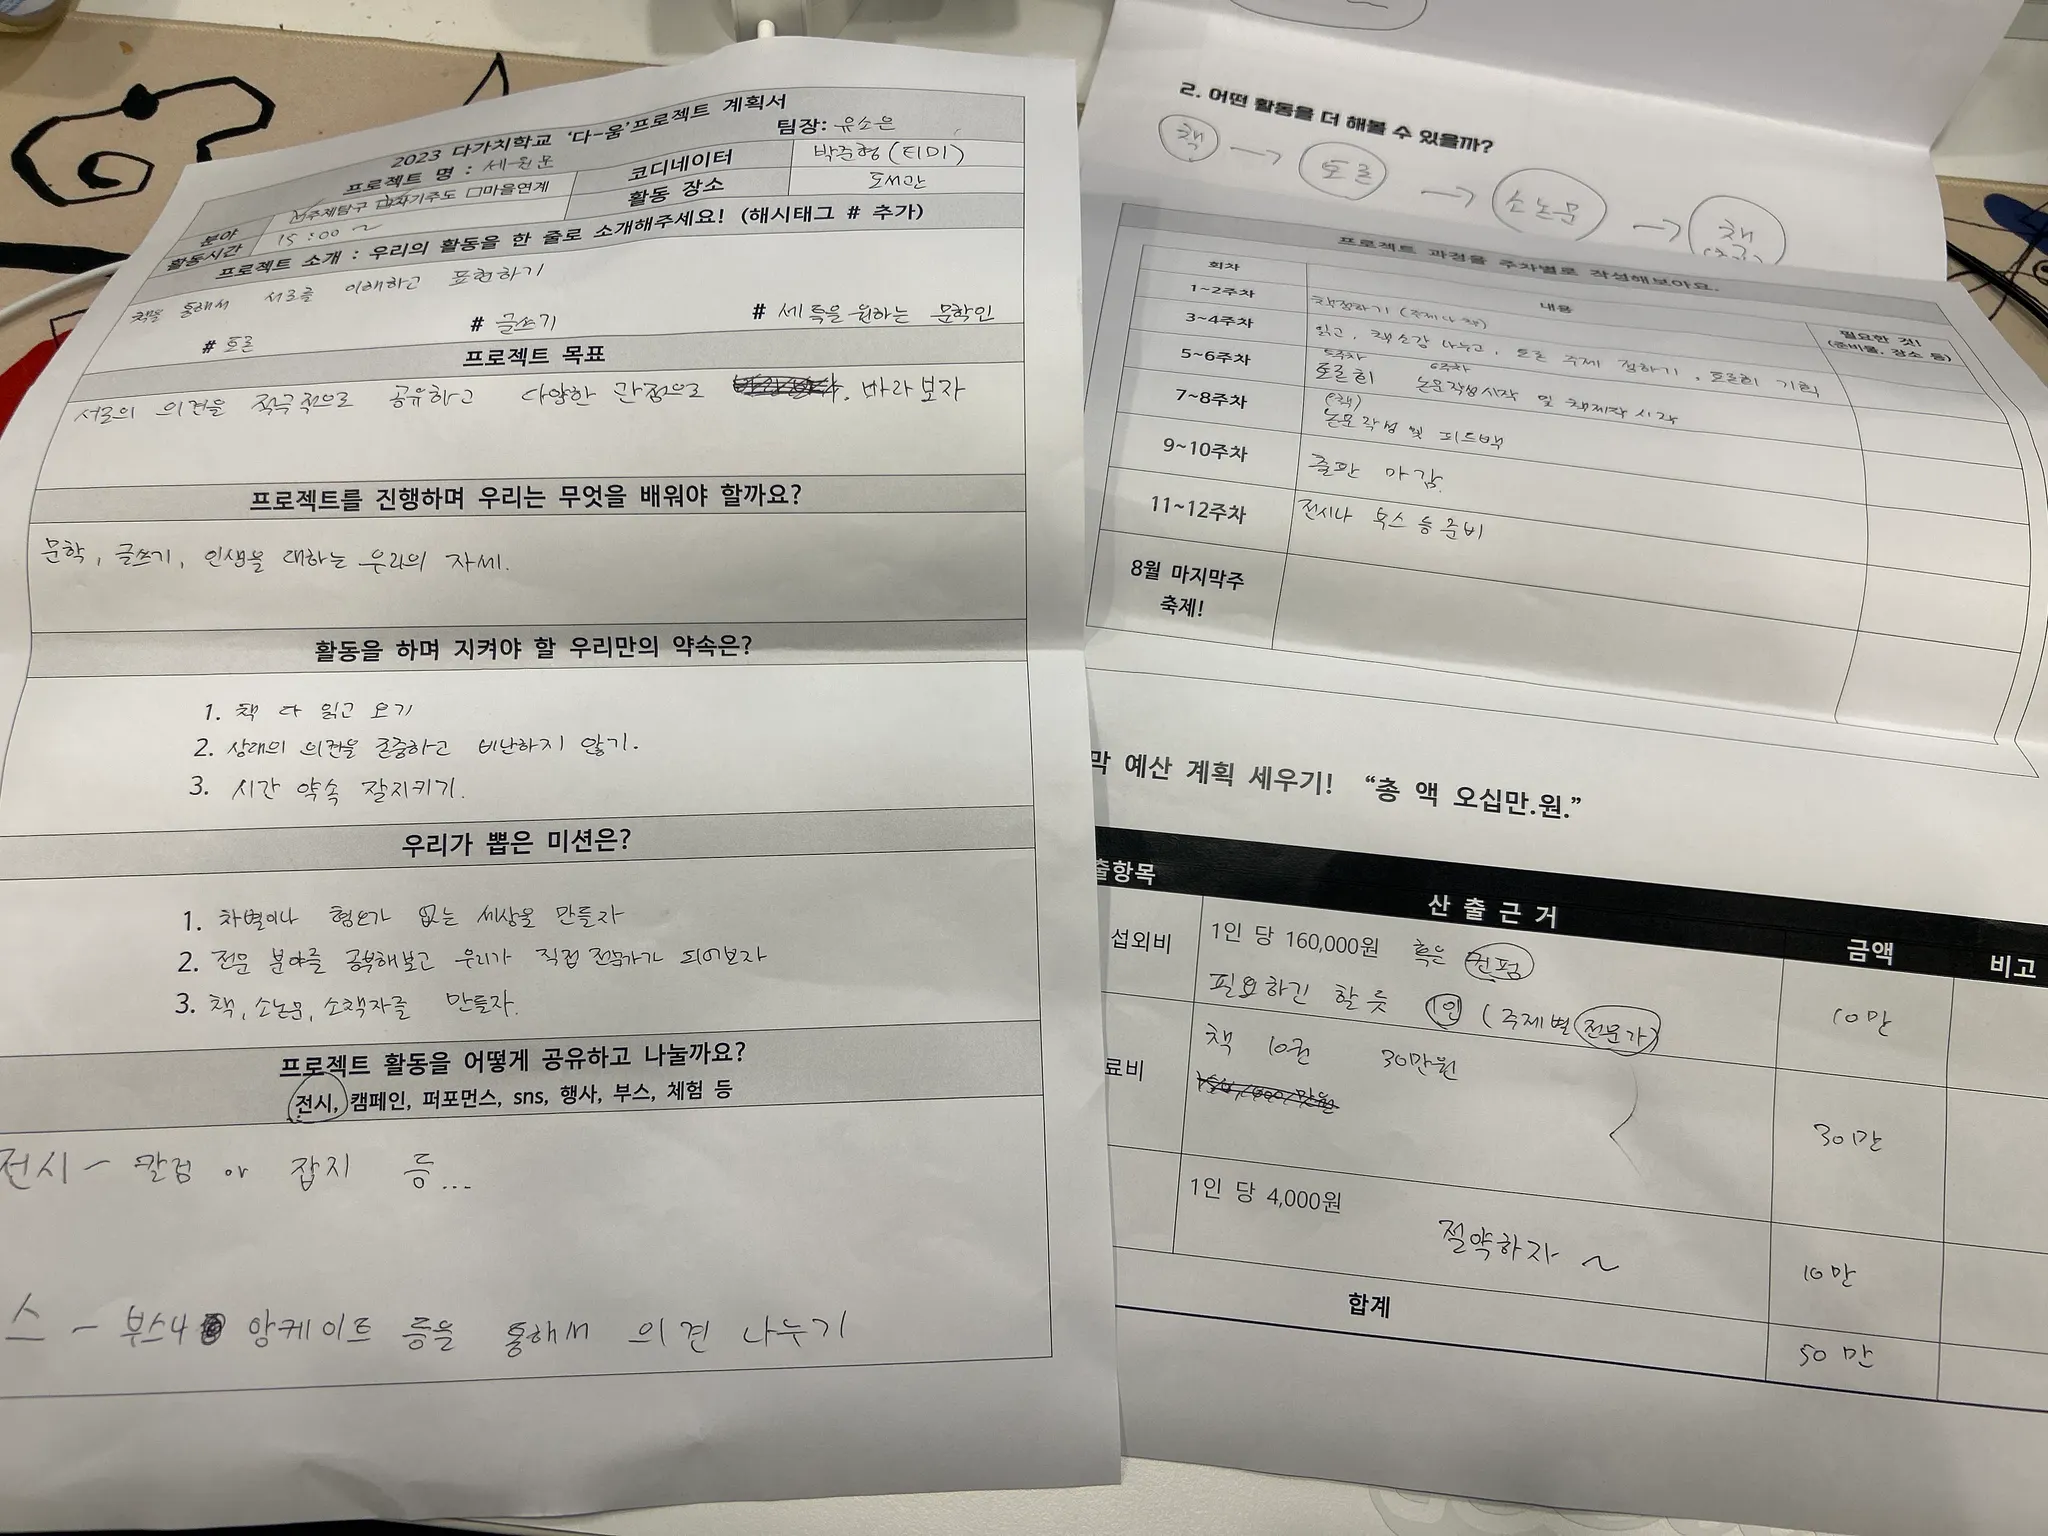 2023 다가치학교 '다-움'프로젝트 계획서
프로젝트 명 : 세원문
팀장: 유소은
분야
주제탐구 □자기주도 □마을연계
코디네이터
박준형(티미)
활동시간
15:00 ~
활동 장소
도서관
프로젝트 소개 : 우리의 활동을 한 줄로 소개해주세요! (해시태그 # 추가)
책을 통해서 서로를 이해하고 표현하기
# 토론
# 글쓰기
# 세특을 원하는 문학인
프로젝트 목표
서로의 의견을 적극적으로 공유하고 다양한 관점으로 바라보자
프로젝트를 진행하며 우리는 무엇을 배워야 할까요?
문학, 글쓰기, 인생을 대하는 우리의 자세.
활동을 하며 지켜야 할 우리만의 약속은?
1. 책 다 읽고 오기
2. 상대의 의견을 존중하고 비난하지 않기.
3. 시간 약속 잘지키기.
우리가 뽑은 미션은?
1. 차별이나 혐오가 없는 세상을 만들자
2. 전문 분야를 공부해보고 우리가 직접 전문가가 되어보자
3. 책, 소논문, 소책자를 만들자.
프로젝트 활동을 어떻게 공유하고 나눌까요?
전시, 캠페인, 퍼포먼스, sns, 행사, 부스, 체험 등
전시 - 칼럼 or 잡지 등...
스 - 부스나 앙케이트 등을 통해서 의견 나누기
2. 어떤 활동을 더 해볼 수 있을까?
책 → 토론 → 소논문 → 책
프로젝트 과정을 주차별로 작성해보아요.
회차
내용
필요한 것!
(준비물, 장소 등)
1~2주차
책정하기 (주제나 책)
3~4주차
읽고, 책 소감 나누고, 토론 주제 정하기, 토론회 기획
5~6주차
5주차 6주차
토론회 논문작성시작 및 책제작 시작
7~8주차
(책)
논문작성 및 피드백
9~10주차
출판 마감.
11~12주차
전시나 부스 등 준비
8월 마지막주
축제!
막 예산 계획 세우기! “총 액 오십만.원.”
출항목
산 출 근 거
금액
비고
섭외비
1인 당 160,000원 혹은 컨펌
필요하긴 할 듯 1인 (주제별 전문가)
10만
료비
책 10권 30만원
30만
1인 당 4,000원
절약하자 ~
10만
합계
50만